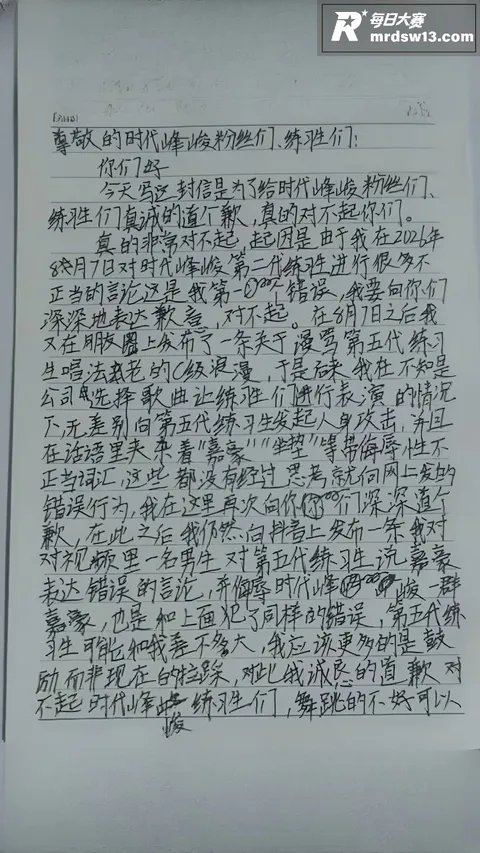 每日大赛
mrdsw13.com
尊敬的时代峰峻粉丝们、练习生们:
你们好
今天写这封信是为了给时代峰峻粉丝们、
练习生们真诚的道个歉,真的对不起你们。
真的非常对不起,起因是由于我在2026年
8月7日对时代峰峻第二代练习生进行很多不
正当的言论这是我第一个错误,我要向你们
深深地表达歉意,对不起。在8月7日之后我
又在朋友圈上发布了一条关于漫骂第五代练习
生唱法老的C级浪漫,于是后来我在不知是
公司选择歌曲让练习生们进行表演的情况
下,无差别向第五代练习生发起人身攻击,并且
在话语里夹杂着“嘉豪”“坐垫”等带侮辱性不
正当词汇,这些都没有经过思考就向网上发的
错误行为,我在这里再次向你们深深道个
歉,在此之后我仍然向抖音上发布一条我对
对视频里一名男生对第五代练习生说嘉豪
表达错误的言论,并侮辱时代峰峻一群
嘉豪,也是和上面犯了同样的错误,第五代练
习生可能和我差不多大,我应该更多的是鼓
励而非现在的拉踩,对此我诚恳的道歉对
不起时代峰峻练习生们,舞跳的不好可以